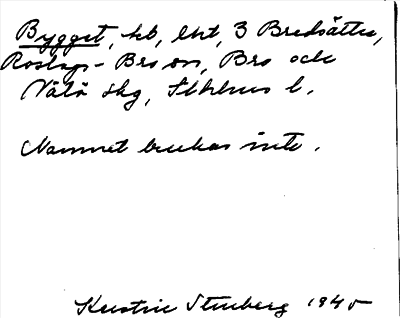 Bygget, kb, lht, 3 Bredsätra,
Roslags-Bro sn, Bro och
Vätö skg, Sthlms l.
Namnet brukas inte.
Kerstin Stenberg 1945